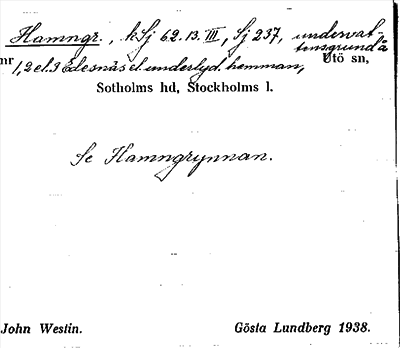 Hamngr., kSj 62.13.III, Sj 237, undervat-
tensgrund å
nr 1,2 el.3 Edesnäs el. underlyd. hemman, Utö sn,
Sotholms hd, Stockholms l.
Se Hamngrynnan.
John Westin. Gösta Lundberg 1938.